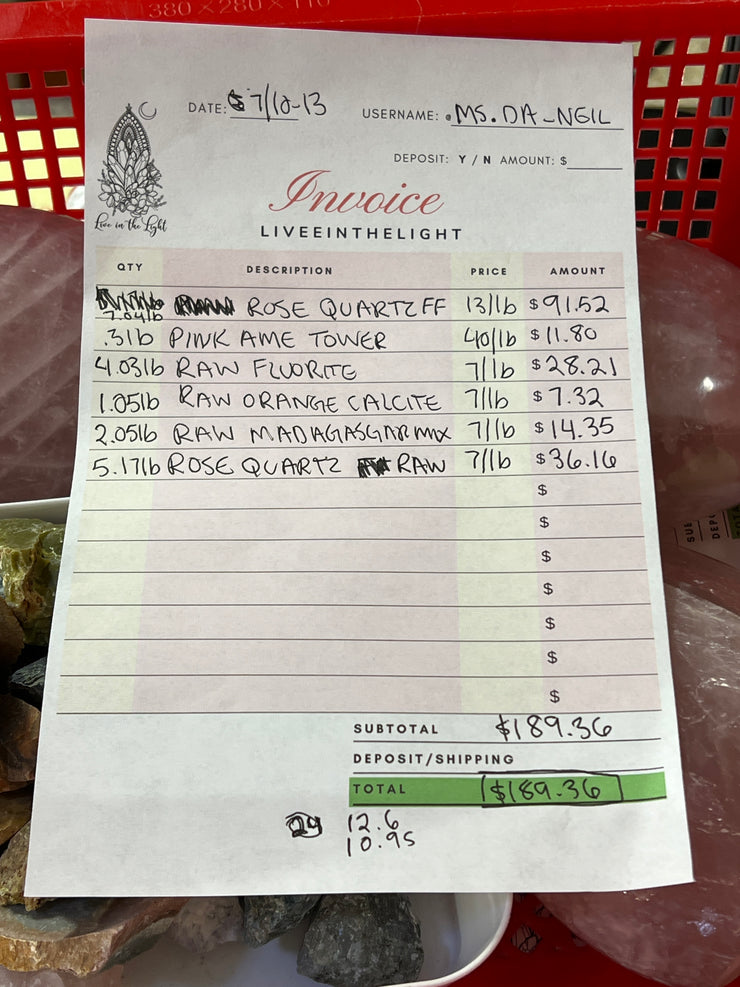 380 × 280 × 110
DATE: $7/12-13
USERNAME: MS.DA_NEIL
DEPOSIT: Y / N AMOUNT: $
Live in the Light
Invoice
LIVEEINTHELIGHT
QTY DESCRIPTION PRICE AMOUNT
7.04lb ROSE QUARTZ FF 13/lb $91.52
.3lb PINK AME TOWER 40/lb $11.80
4.03lb RAW FLUORITE 7/lb $28.21
1.05lb RAW ORANGE CALCITE 7/lb $7.32
2.05lb RAW MADAGASGAR MIX 7/lb $14.35
5.17lb ROSE QUARTZ RAW 7/lb $36.16
$
$
$
$
$
$
$
SUBTOTAL $189.36
DEPOSIT/SHIPPING
TOTAL $189.36
29 12.6
10.95
SUB
DEP
TOT